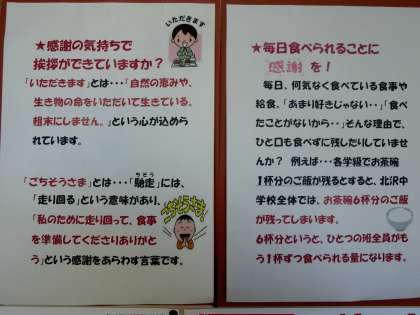 いただきます
★感謝の気持ちで
挨拶ができていますか？
「いただきます」とは・・・「自然の恵みや、
生き物の命をいただいて生きている。
粗末にしません。」という心が込めら
れています。
「ごちそうさま」とは・・・「馳走」には、
ちそう
「走り回る」という意味があり、
「私のために走り回って、食事
を準備してくださりありがと
う」という感謝をあらわす言葉です。
ごちそうさま！
★毎日食べられることに
感謝を！
毎日、何気なく食べている食事や
給食。「あまり好きじゃない・・」「食べ
たことがないから・・」そんな理由で、
ひと口も食べずに残したりしていませ
んか？ 例えば・・・各学級でお茶碗
1杯分のご飯が残るとすると、北沢中
学校全体では、お茶碗6杯分のご飯
が残ってしまいます。
6杯分というと、ひとつの班全員がも
う1杯ずつ食べられる量になります。